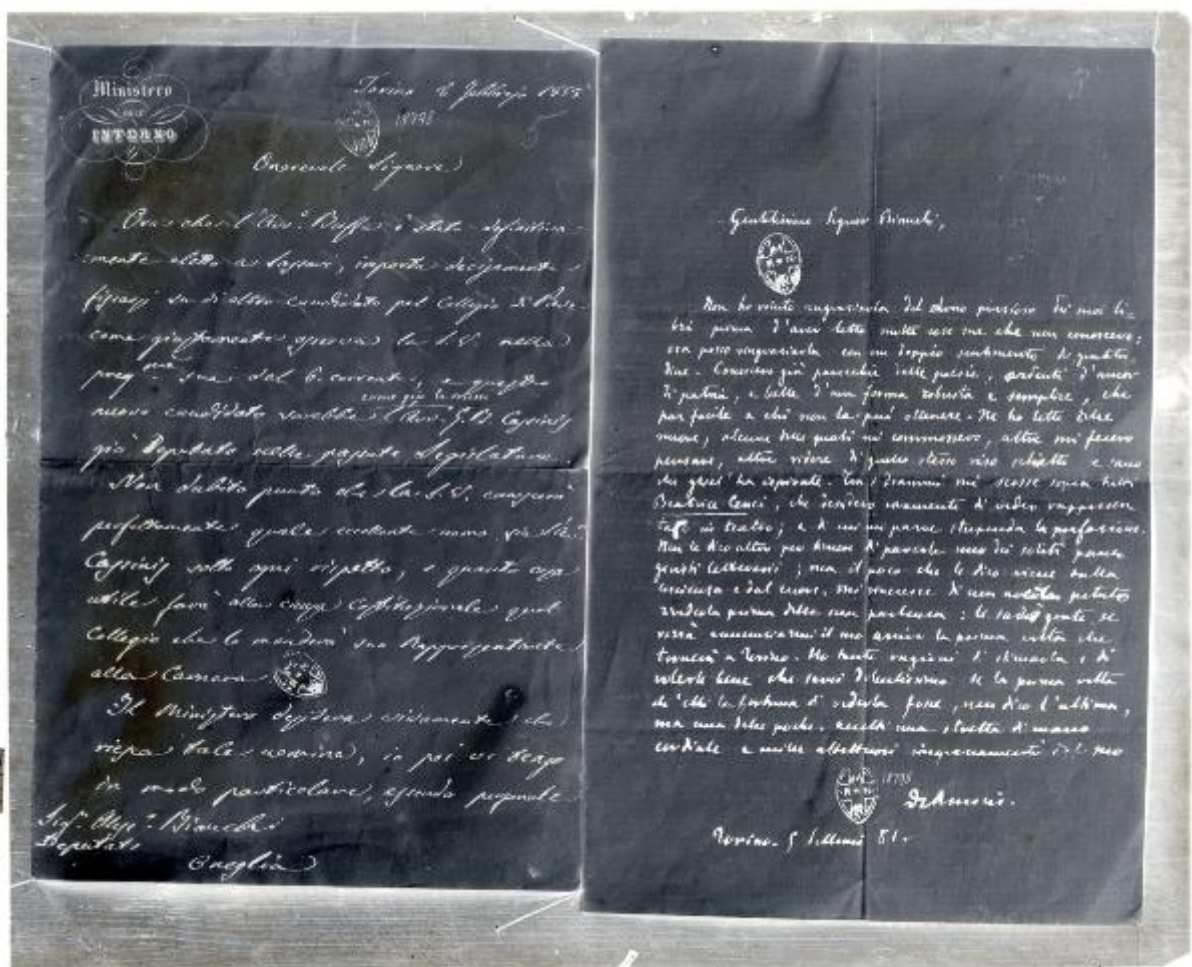 Ministero
DELL'
INTERNO
Torino 8 Febbrajo 1855
18798
Onorevole Signore
Ora che l'Avv.º Buffa è stato definitiva-
mente eletto a Sassari, importa decisamente
fissarsi su di altro candidato pel Collegio di
come giustamente osserva la S.V. nella
preg.ma sua del 6 corrente, e questo
come già le scrissi
nuovo candidato sarebbe l'Avv. G.B. Cassinis
già Deputato nella passata Legislatura.
Non dubito punto che la S.V. conoscerà
perfettamente quale eccellente uomo sia
Cassinis sotto ogni rispetto, e quanto cosa
utile farà alla causa costituzionale quel
Collegio che lo manderà suo Rappresentante
alla Camera.
Il Ministero desidera vivamente che
riesca tale nomina, io poi vi tengo
in modo particolare, essendo personale
Sig. Avv.º Bianchi
Deputato
Oneglia
Gentilissimo Signor Bianchi,
Non ho voluto ringraziarla del dono prezioso dei suoi li-
bri prima d'aver letto molte cose sue che non conoscevo:
ora posso ringraziarla con un doppio sentimento di gratitu-
dine. Conoscevo già parecchie delle poesie, ardenti d'amor
di patria, e belle d'una forma robusta e semplice, che
par facile a chi non la può ottenere. Ne ho lette altre
nuove, alcune delle quali mi commossero, altre mi fecero
pensare, altre ridere di quello stesso riso schietto e
che gliel'ha ispirate. Dei drammi mi scosse sopra tutti
Beatrice Cenci, che desidero vivamente di veder rappresen-
tata in teatro; e di cui mi parve stupenda la prefazione.
Non le dico altro per timore di parerle uno dei soliti
letterarii; ma il poco che le dico viene dalla
coscienza e dal cuore. Mi rincresce di non averla potuta
vedere prima della sua partenza: le sarò grato se
vorrà annunciarmi il suo arrivo la prima volta che
tornerà a Torino. Ho tante ragioni di stimarla e di
volerle bene che sarei dolentissimo se la prima volta
ch'ebbi la fortuna di vederla fosse, non dico l'ultima,
ma una delle poche. Accetti una stretta di mano
cordiale e mille affettuosi ringraziamenti dal suo
18798
De Amicis.
Torino. 5 81.